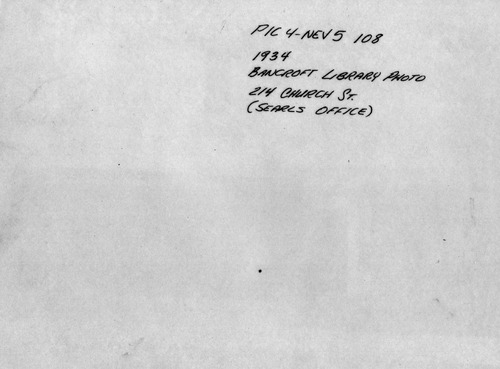 PIC 4-NEV 5 108
1934
BANCROFT LIBRARY PHOTO
214 CHURCH ST.
(SEARLS OFFICE)